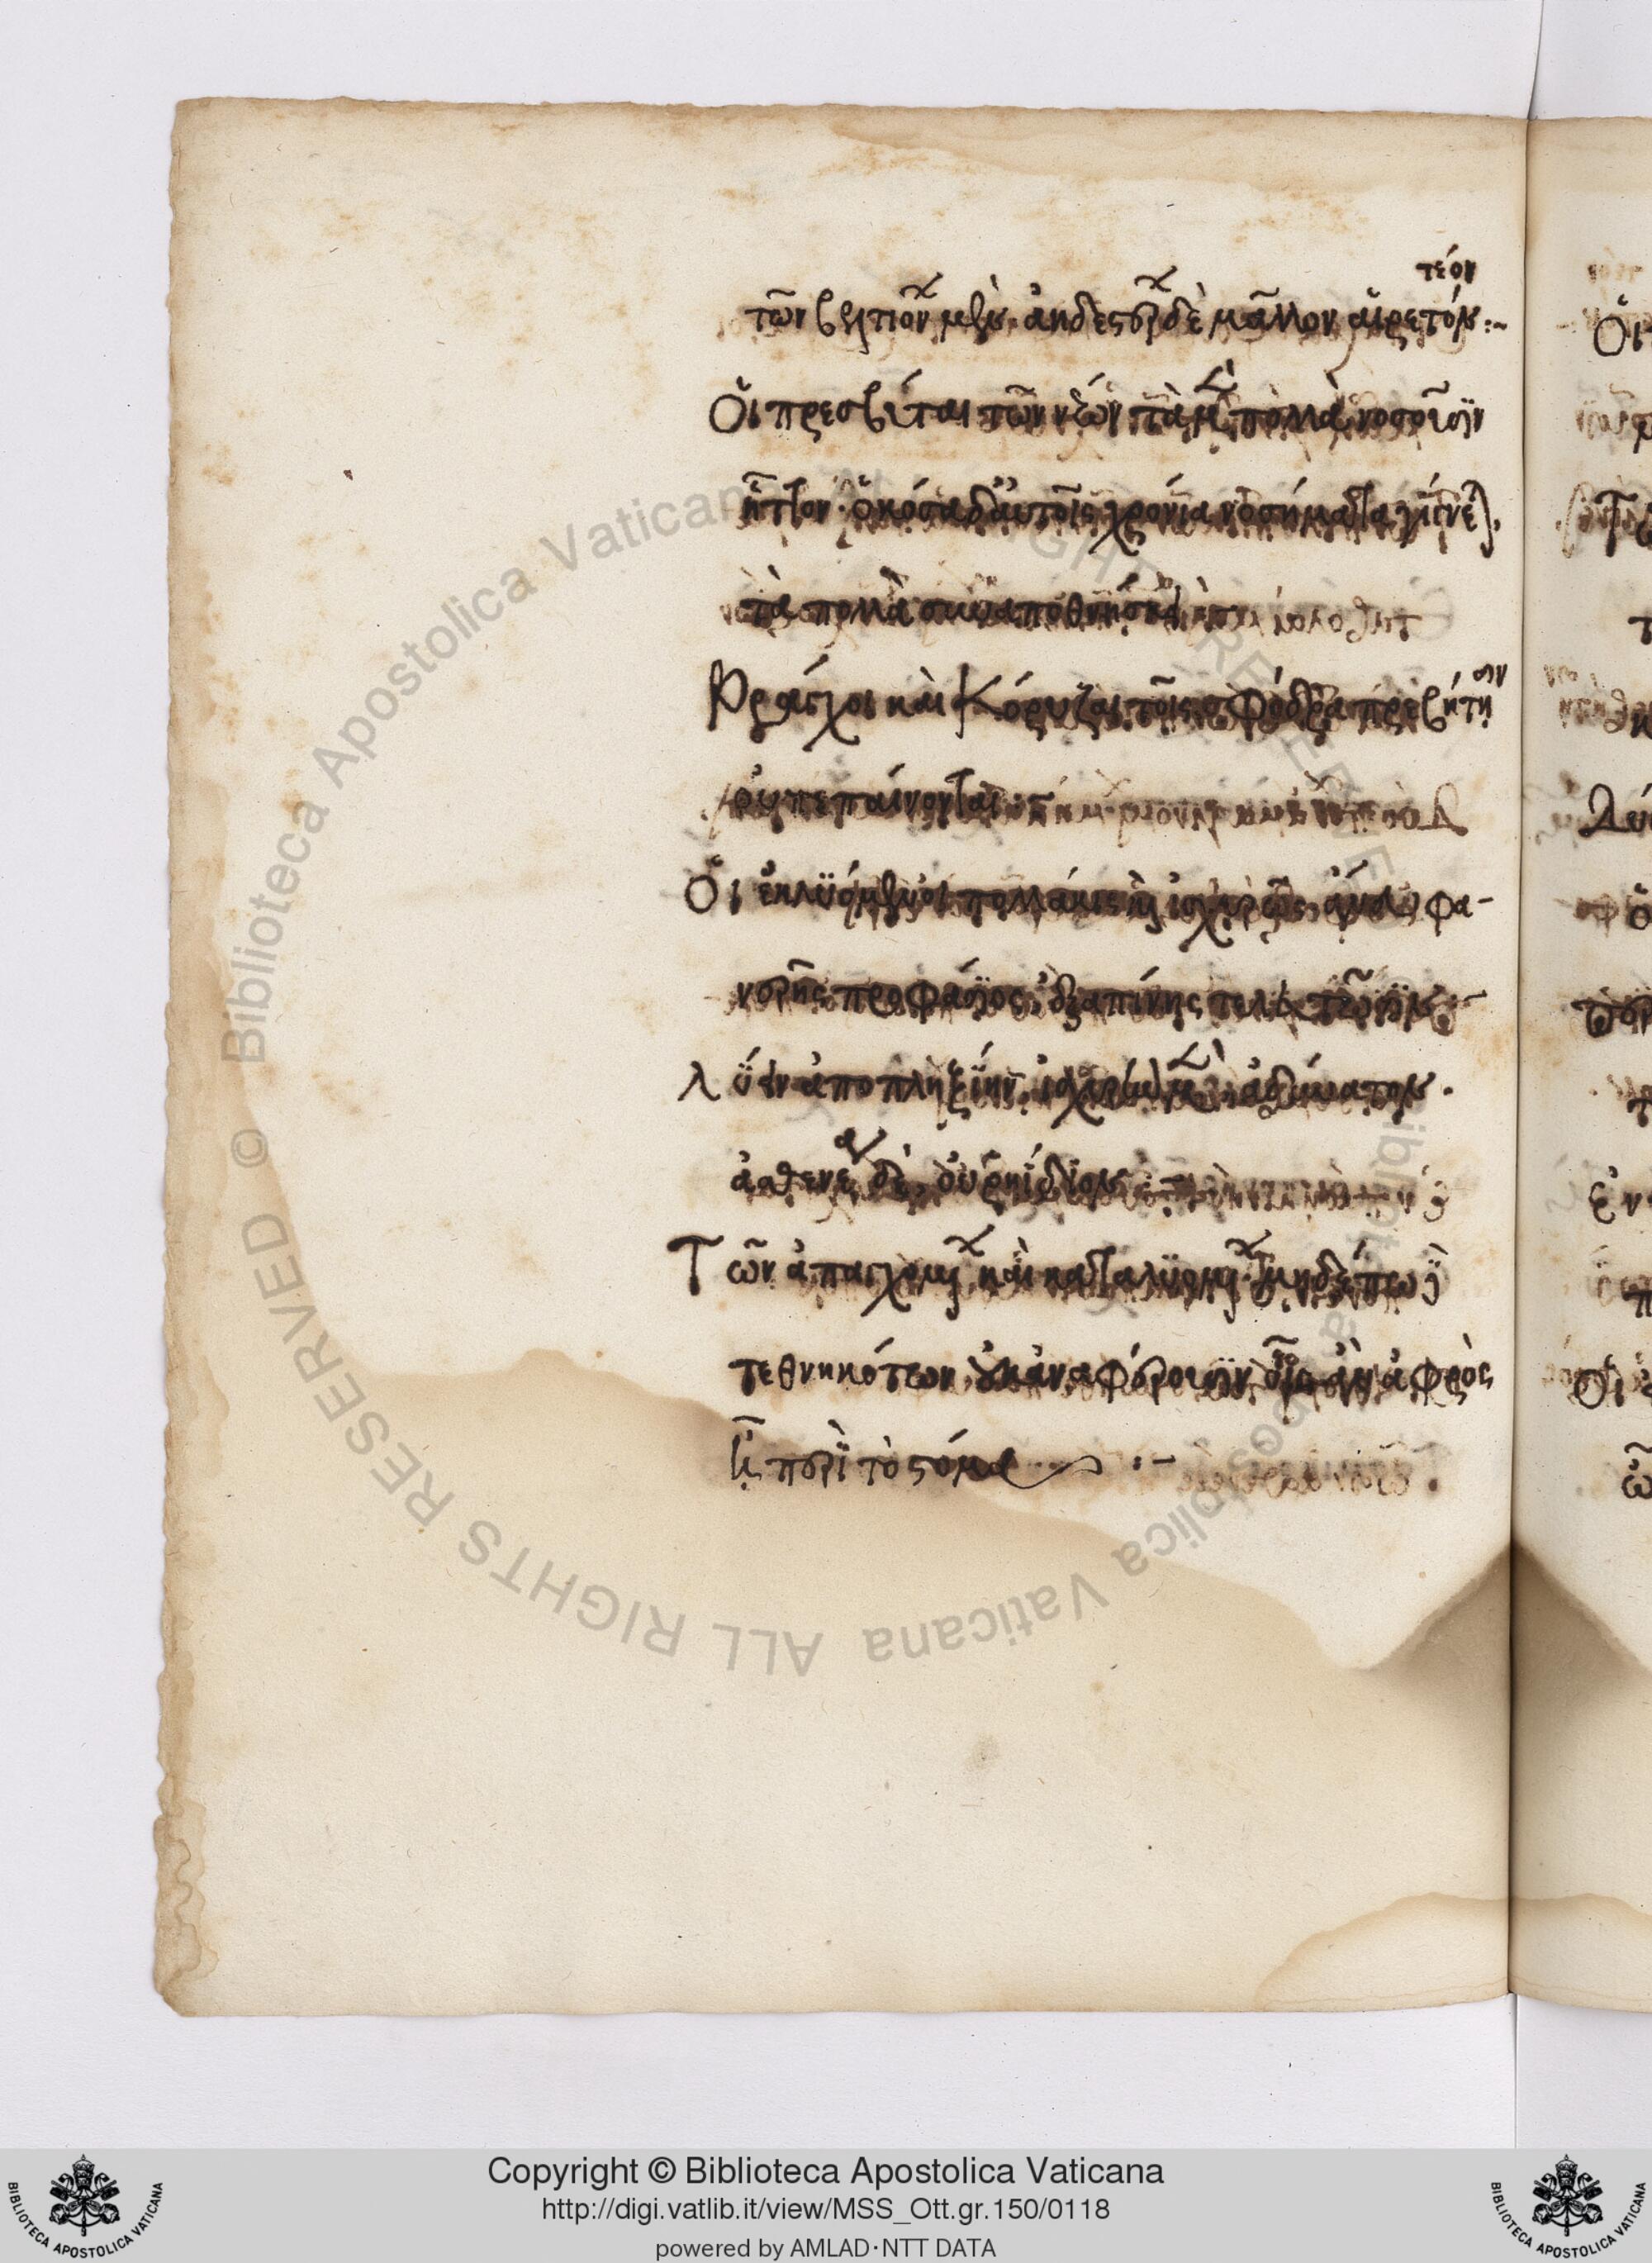 τῶν βελτιόνων μὲν. ἀηδεστέρων δὲ μᾶλλον αἱρετόν :~
τέον
Οἱ πρεσβύται τῶν νέων τὰ μὲν πολλὰ νοσοῦσιν
ἧττον. ὁκόσα δ' αὐτοῖς χρόνια νοσήματα γίνεται,
τὰ πολλὰ συναποθνήσκει
Βράγχοι καὶ κόρυζαι τοῖς σφόδρα πρεσβύτῃσιν
οὐ πεπαίνονται :~
Οἱ ἐκλυόμενοι πολλάκις καὶ ἰσχυρῶς ἄνευ φα-
νερῆς προφάσιος, ἐξαπίνης τελευτῶσιν :~
λύειν ἀποπληξίην ἰσχυρὴν μὲν ἀδύνατον.
ἀσθενέα δὲ, οὐ ῥηίδιον :~
Τῶν ἀπαγχομένων καὶ καταλυομένων. μηδέπω
τεθνηκότων, οὐκ ἀναφέρουσιν οἷσιν ἂν ἀφρὸς
ᾖ περὶ τὸ στόμα :~
© Biblioteca Apostolica Vaticana ALL RIGHTS RESERVED
Copyright © Biblioteca Apostolica Vaticana
http://digi.vatlib.it/view/MSS_Ott.gr.150/0118
powered by AMLAD·NTT DATA
BIBLIOTECA APOSTOLICA VATICANA
BIBLIOTECA APOSTOLICA VATICANA